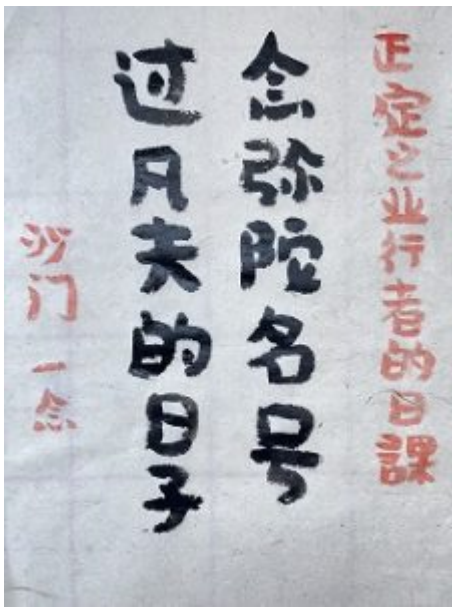 正定之业行者的日課
念弥陀名号
过凡夫的日子
沙门 一念